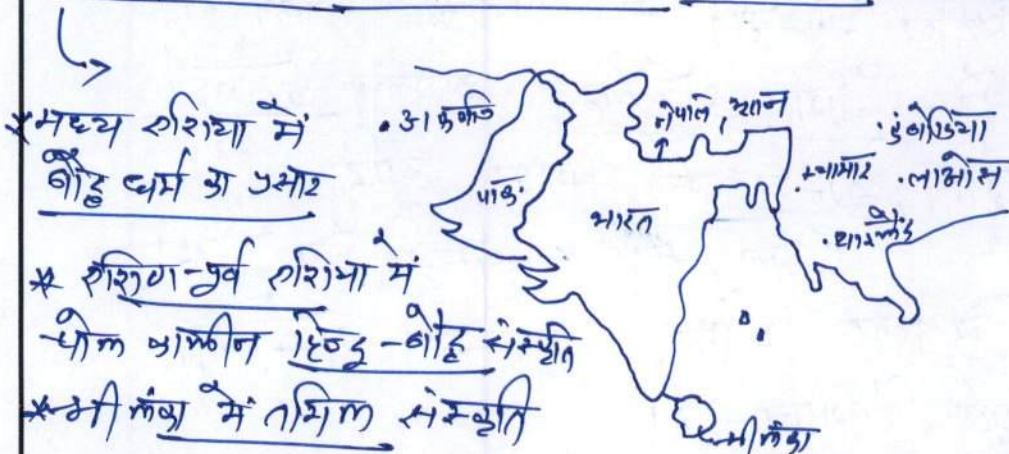 * मध्य एशिया में
बौद्ध धर्म का प्रसार
* दक्षिण-पूर्व एशिया में
चोल कालीन हिन्दू-बौद्ध संस्कृति
* श्री लंका में तमिल संस्कृति
अफगा
पाक
भारत
नेपाल, भूटान
म्यामार
कंबोडिया
लाओस
थाइलैंड
श्रीलंका